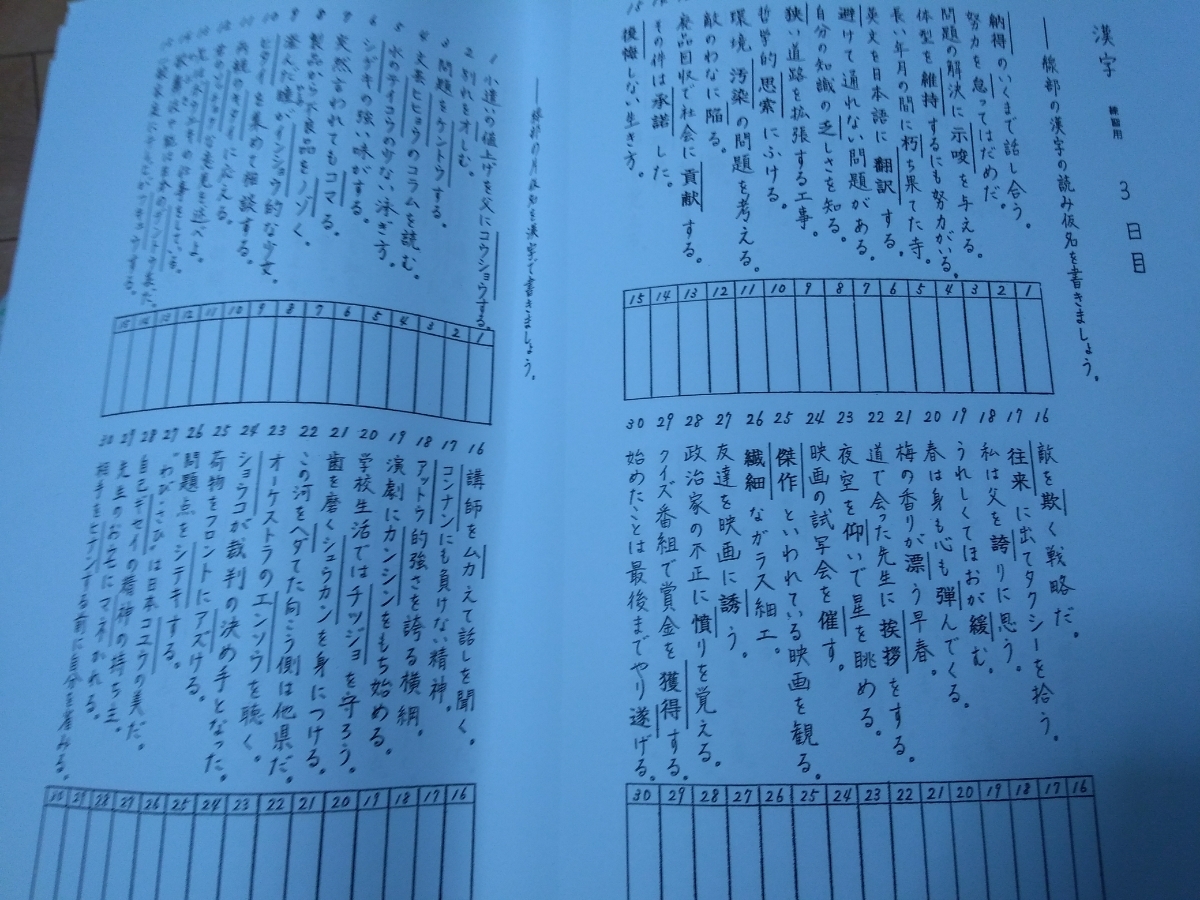 漢字 練習用 3日目
──線部の漢字の読み仮名を書きましょう。
1 納得のいくまで話し合う。
2 努力を怠ってはだめだ。
3 問題の解決に示唆を与える。
4 体型を維持するにも努力がいる。
5 長い年月の間に朽ち果てた寺。
6 英文を日本語に翻訳する。
7 避けて通れない問題がある。
8 自分の知識の乏しさを知る。
9 狭い道路を拡張する工事。
10 哲学的思索にふける。
11 環境汚染の問題を考える。
12 敵のわなに陥る。
13 廃品回収で社会に貢献する。
14 その件は承諾した。
15 後悔しない生き方。
16 敵を欺く戦略だ。
17 往来に出てタクシーを拾う。
18 私は父を誇りに思う。
19 うれしくてほおが緩む。
20 春は身も心も弾んでくる。
21 梅の香りが漂う早春。
22 道で会った先生に挨拶をする。
23 夜空を仰いで星を眺める。
24 映画の試写会を催す。
25 傑作といわれている映画を観る。
26 繊細なガラス細工。
27 友達を映画に誘う。
28 政治家の不正に憤りを覚える。
29 クイズ番組で賞金を獲得する。
30 始めたことは最後までやり遂げる。
──線部の片仮名を漢字で書きましょう。
1 小遣いの値上げを父にコウショウする。
2 別れをオしむ。
3 問題をケントウする。
4 文芸ヒヒョウのコラムを読む。
5 水のテイコウの少ない泳ぎ方。
6 シゲキの強い味がする。
7 突然言われてもコマる。
8 製品から不良品をノゾく。
9 澄んだ瞳がインショウ的な少女。
10
11 両親のキタイに応える。
12
13
14
15
16 講師をムカえて話しを聞く。
17 コンナンにも負けない精神。
18 アットウ的強さを誇る横綱。
19 演劇にカンシンをもち始める。
20 学校生活ではチツジョを守ろう。
21 歯を磨くシュウカンを身につける。
22 この河をヘダてた向こう側は他県だ。
23 オーケストラのエンソウを聴く。
24 ショウコが裁判の決め手となった。
25 荷物をフロントにアズける。
26 問題点をシテキする。
27 "わびさび"は日本コユウの美だ。
28 自己ギセイの精神の持ち主。
29 先生のお宅にマネかれる。
30 相手をヒナンする前に自分を省みる。